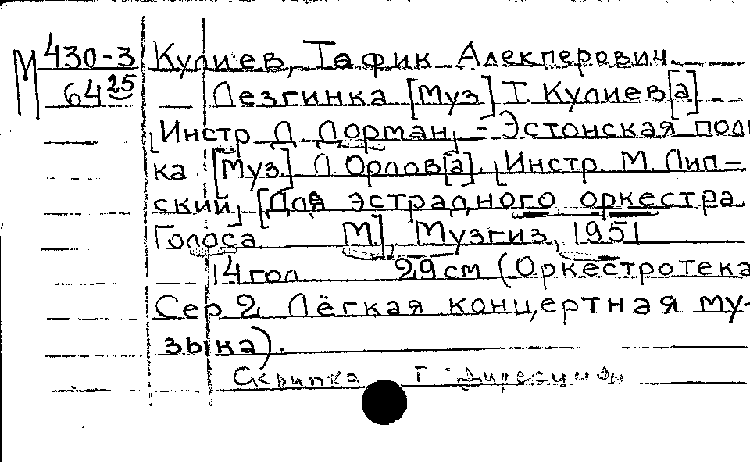 М 430-3 Кулиев, Тафик Алекперович.
64 25 Лезгинка [Муз] Т. Кулиев[а]
[Инстр Д. Дорман]. - Эстонская поль
ка [Муз.] Л Орлов[а]. [Инстр. М. Лип-
ский] [Для эстрадного оркестра.
Голоса М.], Музгиз, 1951
14 гол 29 см (Оркестротека
Сер 2 Лёгкая концертная му-
зыка).
Скрипка